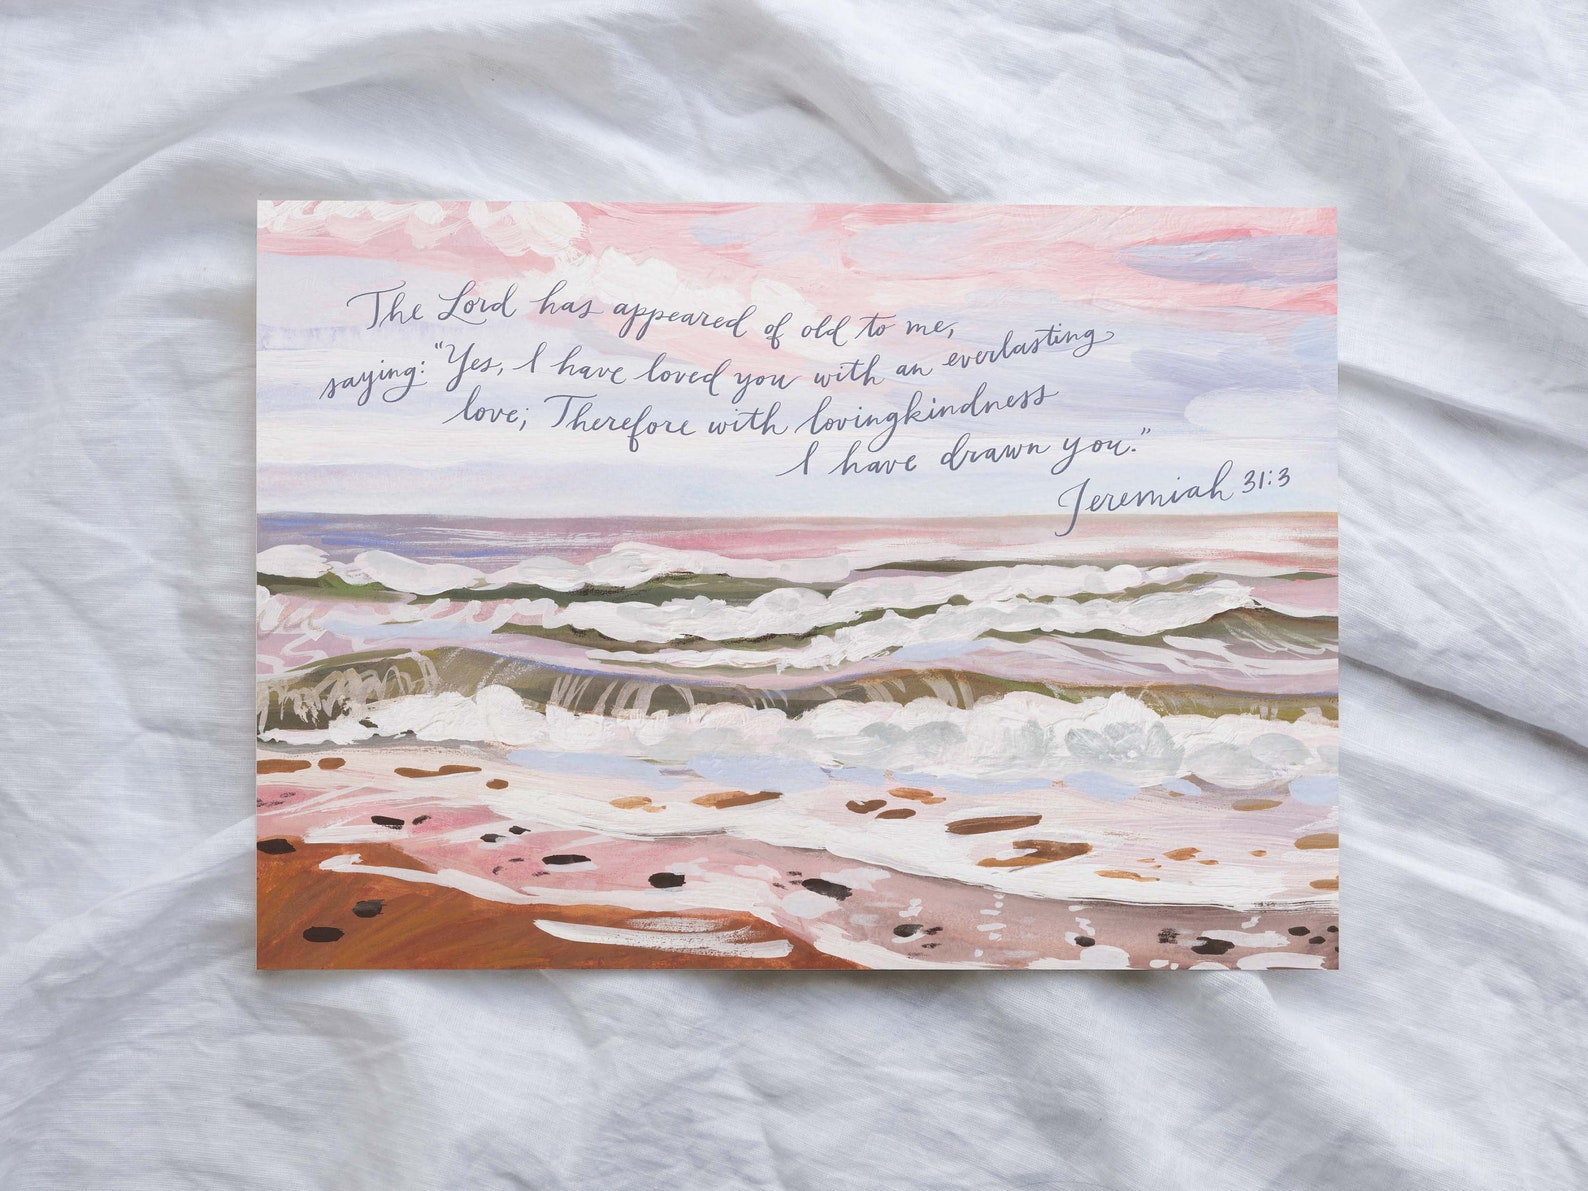 The Lord has appeared of old to me,
saying: "Yes, I have loved you with an everlasting
love; Therefore with lovingkindness
I have drawn you."
Jeremiah 31:3